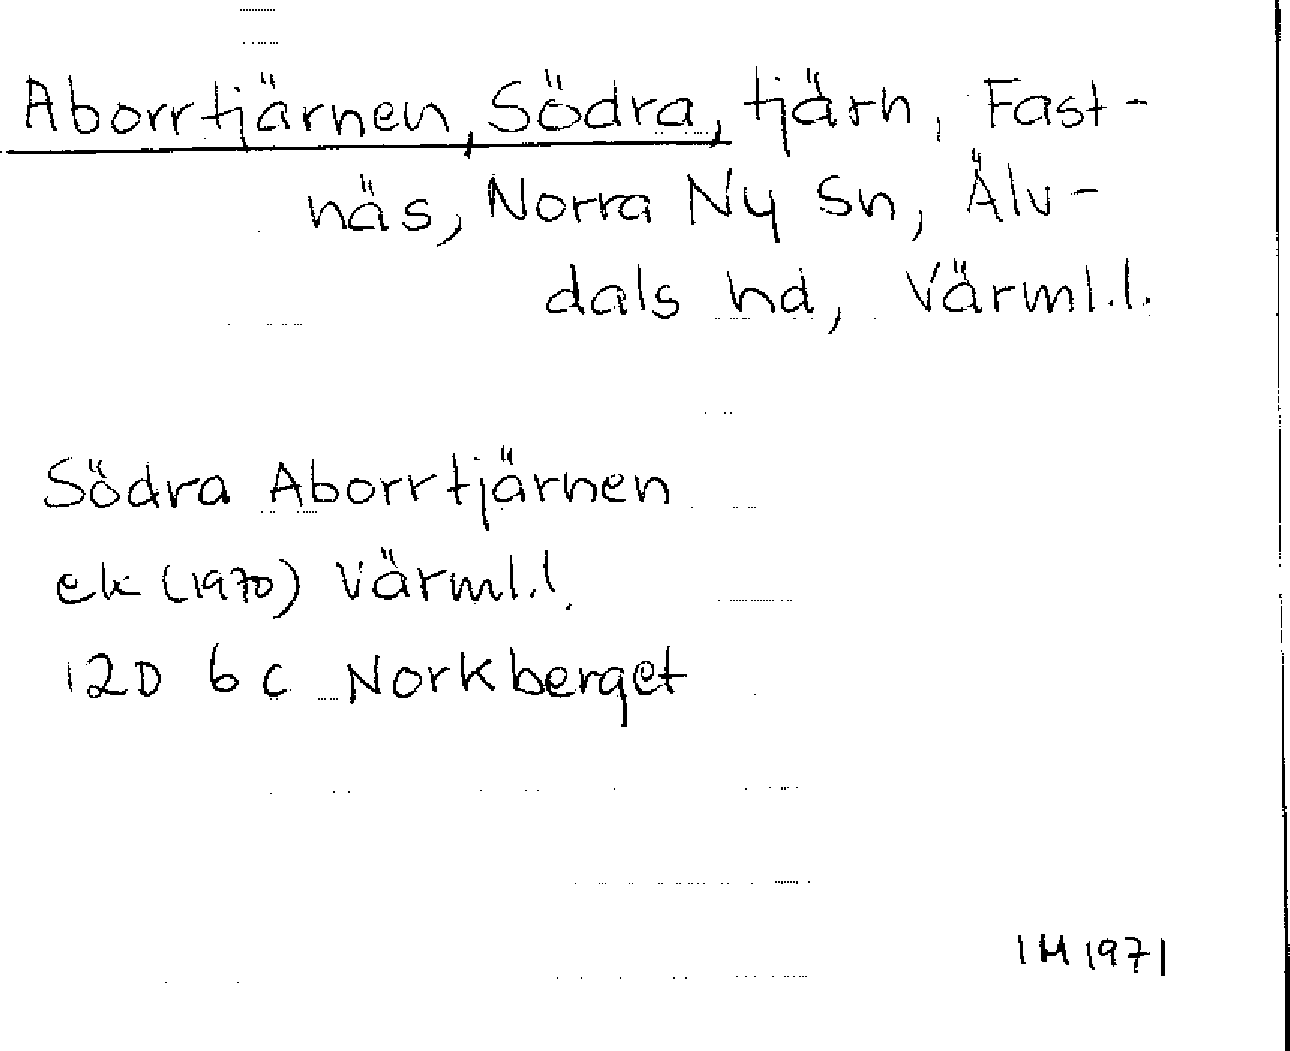 Aborrtjärnen, Södra, tjärn, Fast-
näs, Norra Ny Sn, Älv-
dals hd, Värml.l.
Södra Aborrtjärnen
ek (1970) Värml.l.
12D 6c Norkberget
IM 1971